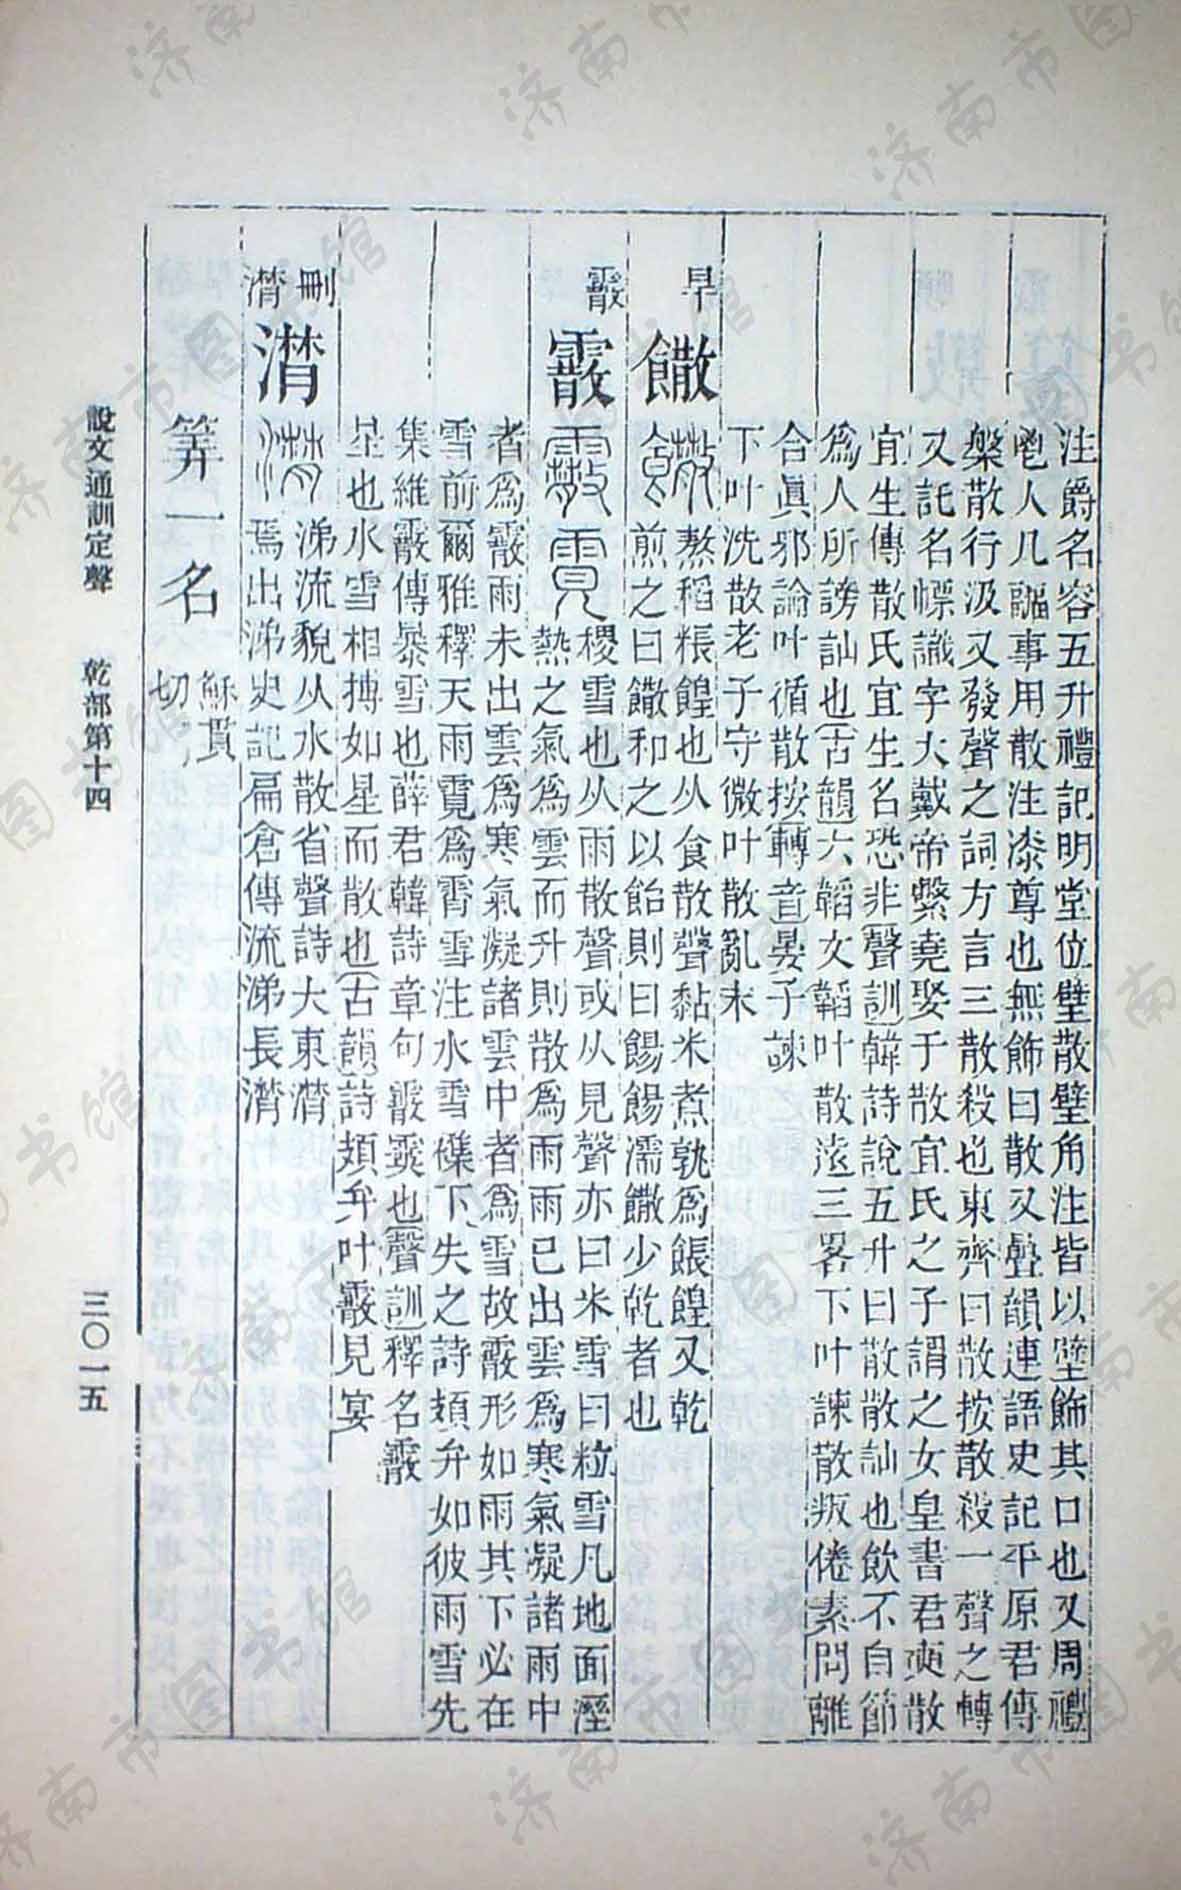 注爵名容五升禮記明堂位璧散璧角注皆以璧飾其口也又周禮
鬯人凡疈事用散注漆尊也無飾曰散又疊韻連語史記平原君傳
槃散行汲又發聲之詞方言三散殺也東齊曰散按散殺一聲之轉
又託名幖識字大戴帝繫堯娶于散宜氏之子謂之女皇書君奭散
宜生傳散氏宜生名恐非聲訓韓詩說五升曰散散訕也飲不自節
爲人所謗訕也古韻六韜女韜叶散遠三畧下叶諫散叛倦素問離
合眞邪論叶循散按轉音晏子諫
下叶洗散老子守微叶散亂末
早
饊
熬稻粻䭗也从食散聲黏米煮孰爲餦餭又乾
煎之曰饊和之以飴則曰餳餳濡饊少乾者也
霰
霰
稷雪也从雨散聲或从見聲亦曰米雪曰粒雪凡地面溼
熱之氣爲雲而升則散爲雨雨已出雲爲寒氣凝諸雨中
者爲霰雨未出雲爲寒氣凝諸雲中者爲雪故霰形如雨其下必在
雪前爾雅釋天雨霓爲霄雪注水雪襍下失之詩頍弁如彼雨雪先
集維霰傳暴雪也薛君韓詩章句霰霙也聲訓釋名霰
星也水雪相搏如星而散也古韻詩頍弁叶霰見宴
刪
潸
潸
涕流貌从水散省聲詩大東潸
焉出涕史記扁倉傳流涕長潸
筭一名
穌貫
切
說文通訓定聲 乾部第十四 三〇一五
济南市图书馆